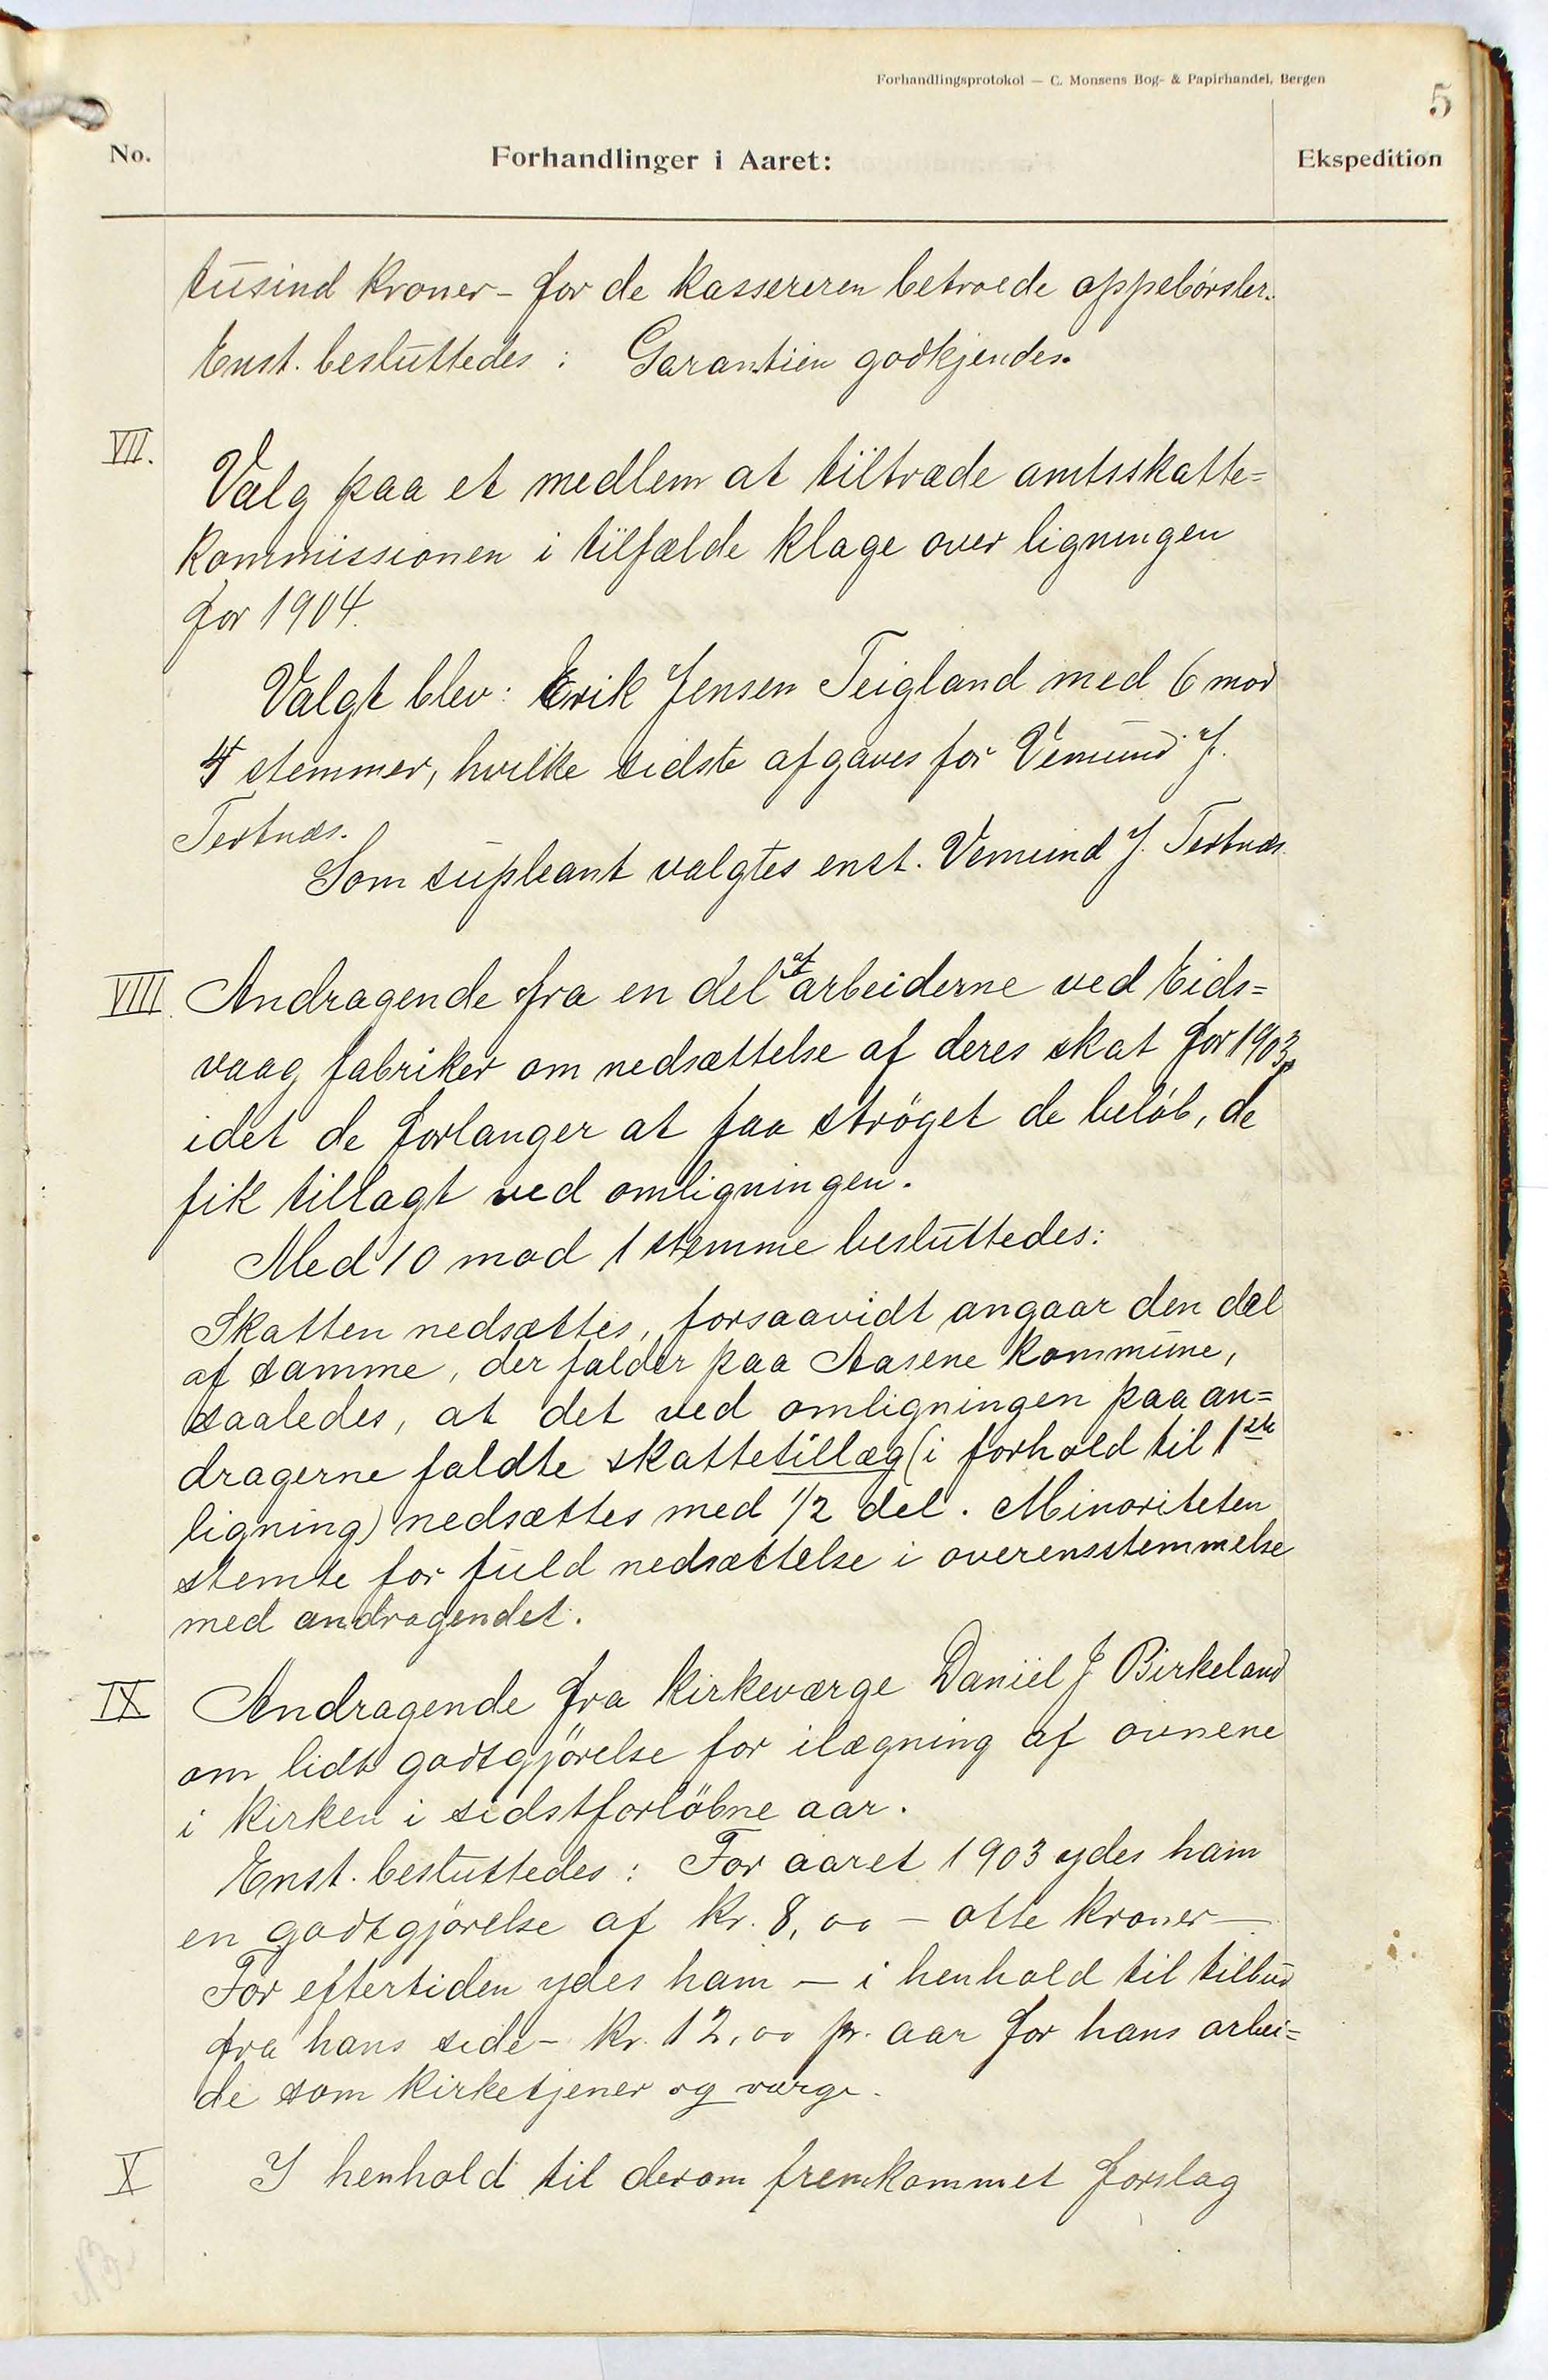 Forhandlingsprotokol — C. Monsens Bog- & Papirhandel, Bergen
5
No.
Forhandlinger i Aaret:
Ekspedition
tusind kroner - for de kassereren betroede oppebörsler.
Enst. besluttedes: Garantien godkjendes.
VII.
Valg paa et medlem at tiltræde amtsskatte=
kommissionen i tilfælde klage over ligningen
for 1904.
Valgt blev: Erik Jensen Teigland med 6 mod
4 stemmer, hvilke sidste afgaves for Vemund J.
Tertnæs.
Som supleant valgtes enst. Vemund J. Tertnæs.
VIII.
Andragende fra en del af arbeiderne ved Eids=
vaag fabriker om nedsættelse af deres skat for 1903,
idet de forlanger at faa ströget de belöb, de
fik tillagt ved omligningen.
Med 10 mod 1 stemme besluttedes:
Skatten nedsættes, forsaavidt angaar den del
af samme, der falder paa Aasene kommune,
saaledes, at det ved omligningen paa an=
dragerne faldte skattetillæg (i forhold til 1ste
ligning) nedsættes med 1/2 del. Minoriteten
stemte for fuld nedsættelse i overensstemmelse
med andragendet.
IX
Andragende fra kirkeværge Daniel J. Birkeland
om lidt godtgjörelse for ilægning af ovnene
i kirken i sidstforløbne aar.
Enst. besluttedes: For aaret 1903 ydes ham
en godtgjörelse af kr. 8,00 - otte kroner -
For eftertiden ydes ham - i henhold til tilbud
fra hans side - kr. 12,00 pr. aar for hans arbei=
de som kirketjener og værge.
X
I henhold til derom fremkommet forslag